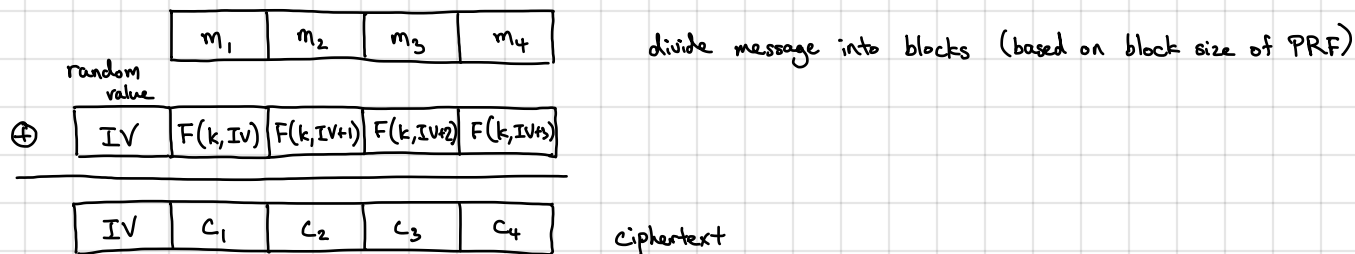 m₁ m₂ m₃ m₄ divide message into blocks (based on block size of PRF)
random
value
⊕ IV F(k,IV) F(k,IV+1) F(k,IV+2) F(k,IV+3)
IV C₁ C₂ C₃ C₄ ciphertext